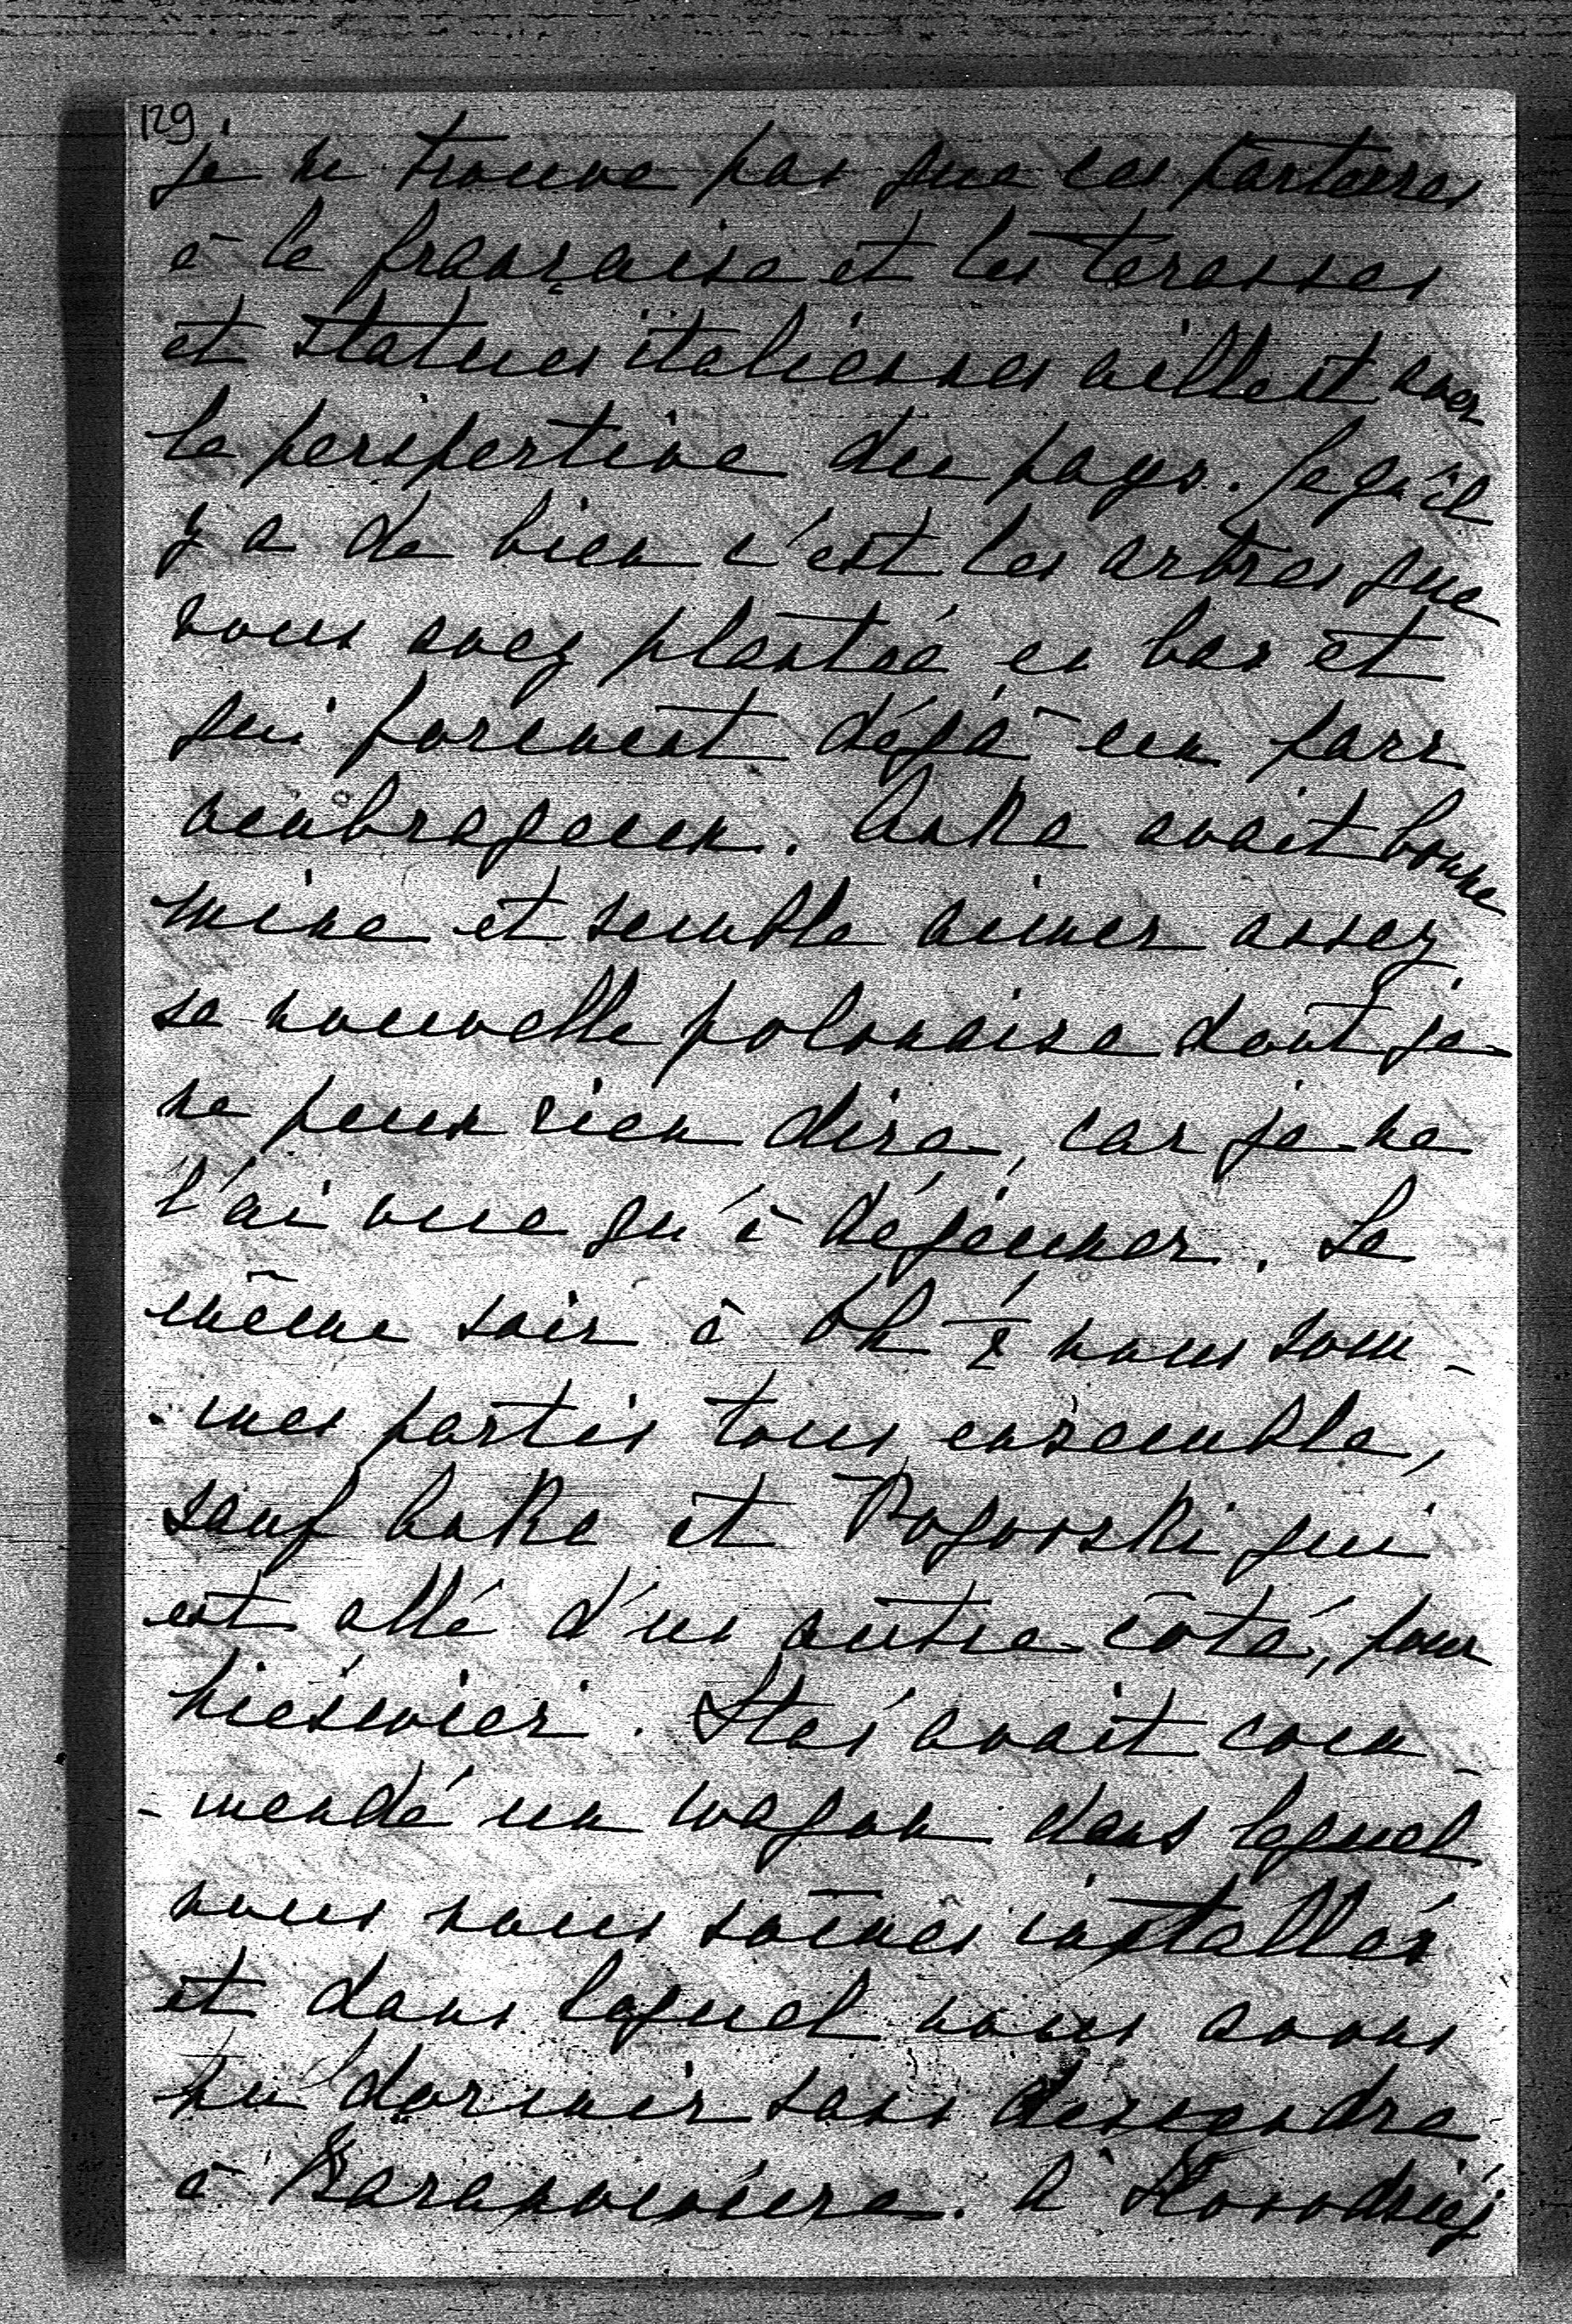 129
je ne trouve pas que ces parterres
à la française et les terasses
et statues italiennes aillent avec
la perspective du pays. Ce qu'il
y a de bien c'est les arbres que
vous avez planté en bas et
qui forment déjà un parc
ombrageux. Anka avait bonne
mine et semble aimer assez
sa nouvelle polonaise dont je
ne peux rien dire, car je ne
l'ai vue qu'à déjeuner. Le
même soir à 6h ½ nous som-
-mes partis tous ensemble,
sauf Anka et Rogowski qui
est allé d'un autre côté, pour
Nieśwież. Staś avait com-
-mandé un wagon dans lequel
nous nous sômes installés
et dans lequel nous avons
pu dormir sans descendre
à Baranowicze. A Horodziej